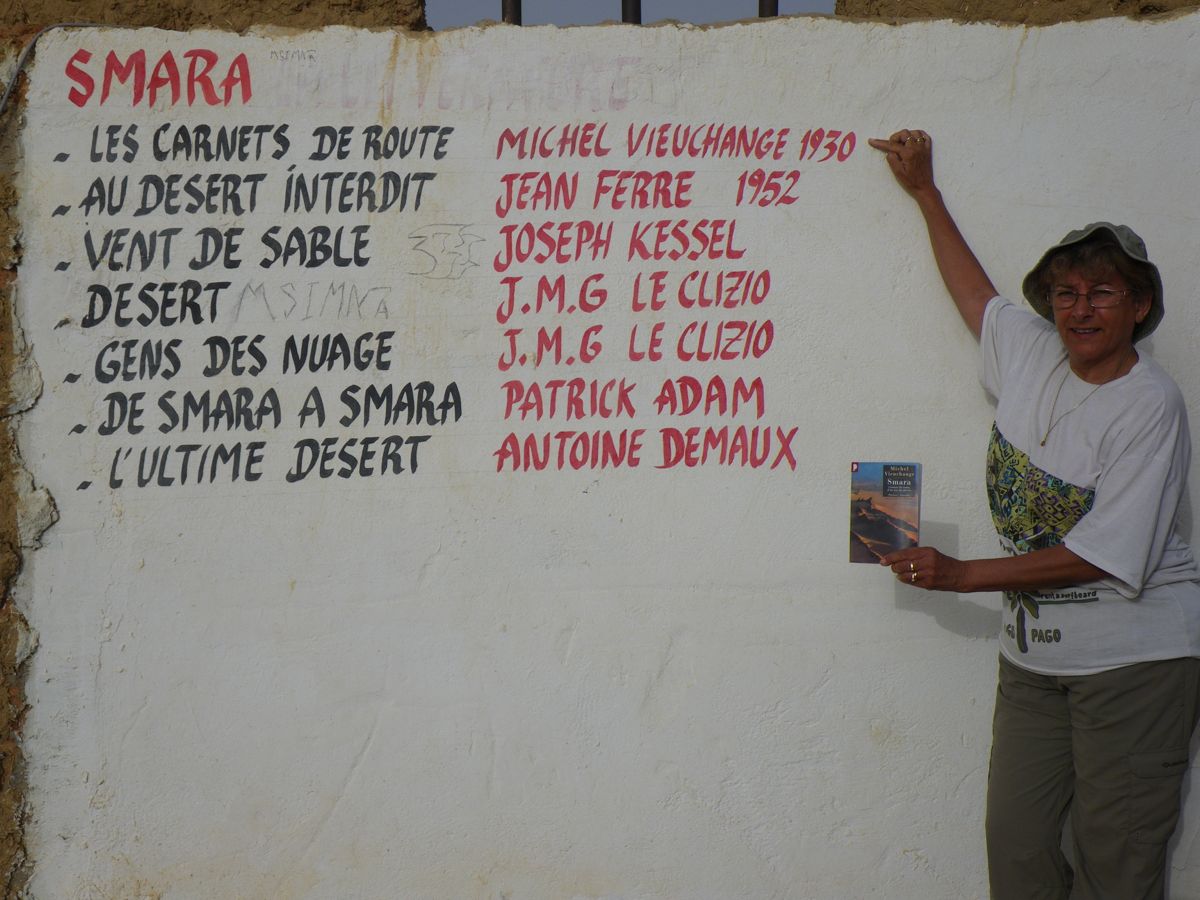 SMARA
MSIMNR
- LES CARNETS DE ROUTE MICHEL VIEUCHANGE 1930
- AU DESERT INTERDIT JEAN FERRE 1952
- VENT DE SABLE JOSEPH KESSEL
- DESERT MSIMNR J.M.G LE CLIZIO
- GENS DES NUAGE J.M.G LE CLIZIO
- DE SMARA A SMARA PATRICK ADAM
- L'ULTIME DESERT ANTOINE DEMAUX
Michel
Vieuchange
Smara
PAGO